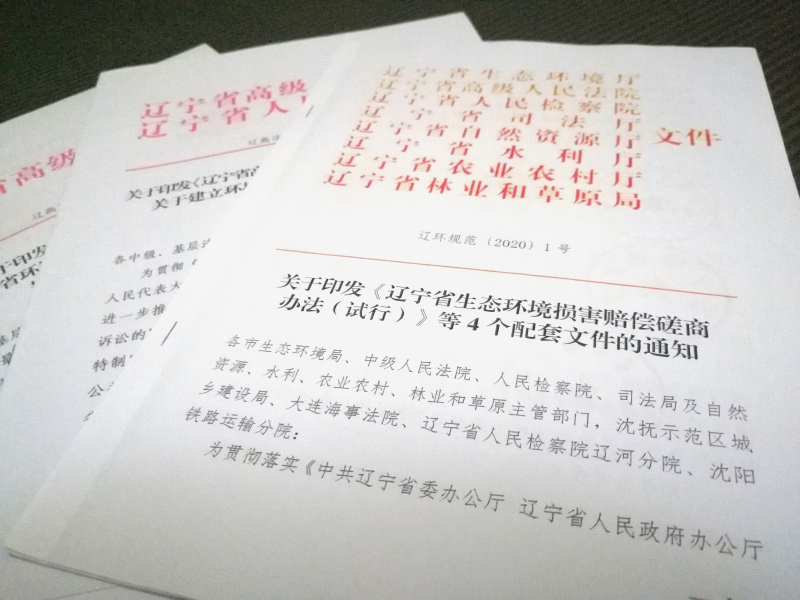 辽宁省生态环境厅
辽宁省高级人民法院
辽宁省人民检察院
辽宁省司法厅
辽宁省自然资源厅
辽宁省水利厅
辽宁省农业农村厅
辽宁省林业和草原局
文件
辽环规范〔2020〕1号
关于印发《辽宁省生态环境损害赔偿磋商
办法（试行）》等4个配套文件的通知
各市生态环境局、中级人民法院、人民检察院、司法局及自然
资源、水利、农业农村、林业和草原主管部门，沈抚示范区城
乡建设局、大连海事法院、辽宁省人民检察院辽河分院、沈阳
铁路运输分院：
为贯彻落实《中共辽宁省委办公厅 辽宁省人民政府办公厅
辽宁省高级
辽宁省人
关于印发《辽宁省高
关于建立环
各中级、基层
为贯彻《
人民代表大
进一步推
诉讼的
特制
公
省高级
关于印发
省环